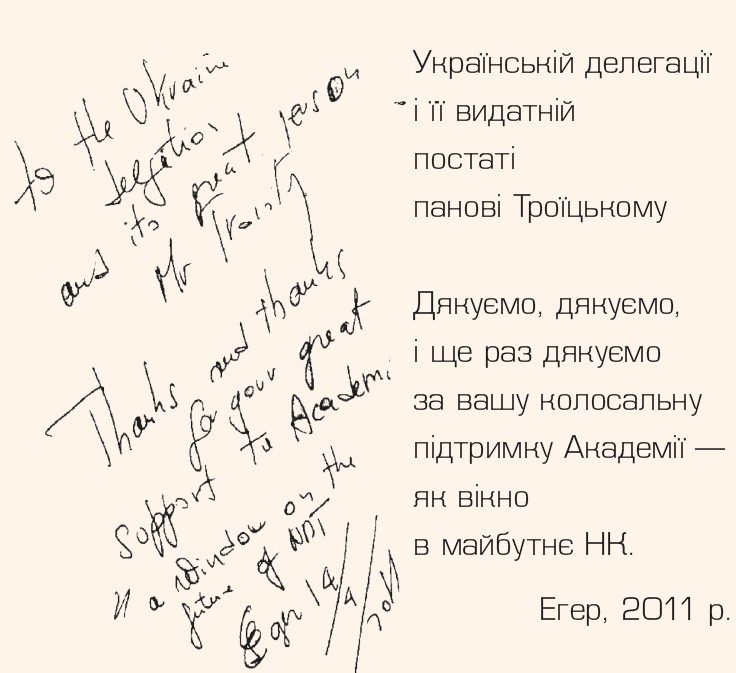 to the Ukraine
delegation
and its great person
Mr Troisty
Thanks and thanks
for your great
support to Academi
a window on the
future of NDT
Eger 14/4/2011
Українській делегації
і її видатній
постаті
панові Троїцькому
Дякуємо, дякуємо,
і ще раз дякуємо
за вашу колосальну
підтримку Академії —
як вікно
в майбутнє НК.
Егер, 2011 р.